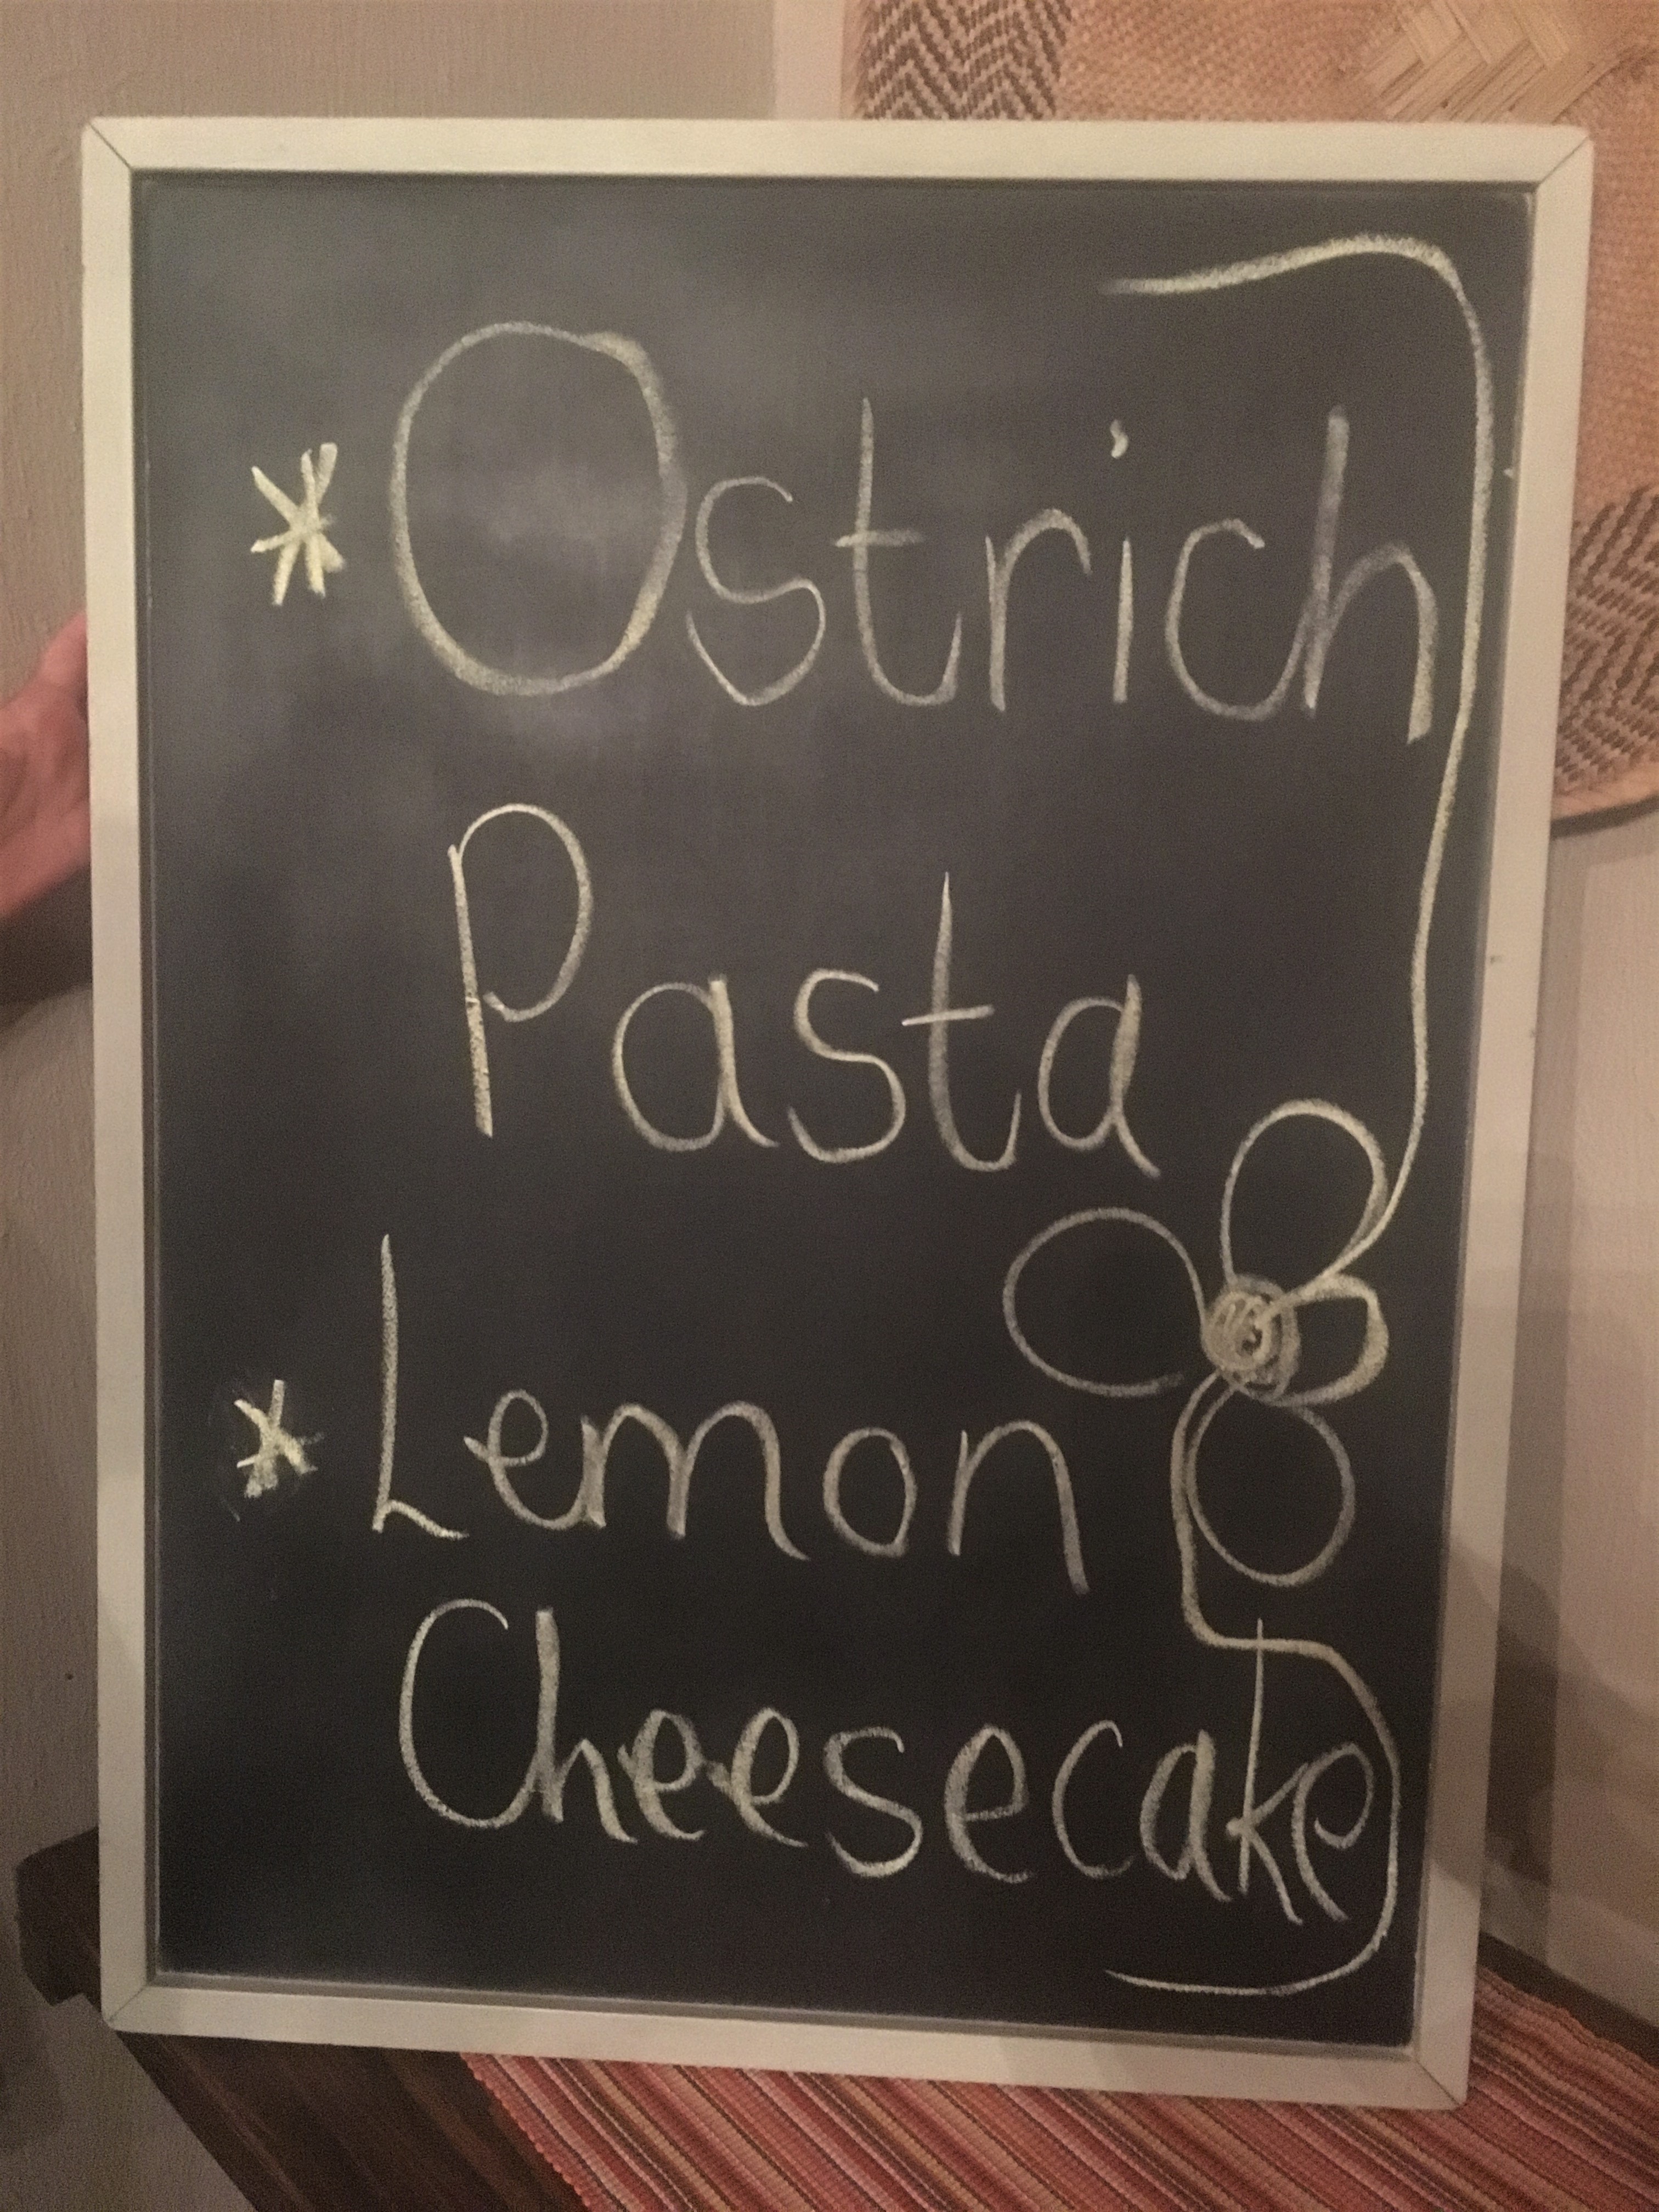 * Ostrich
Pasta
* Lemon
Cheesecake